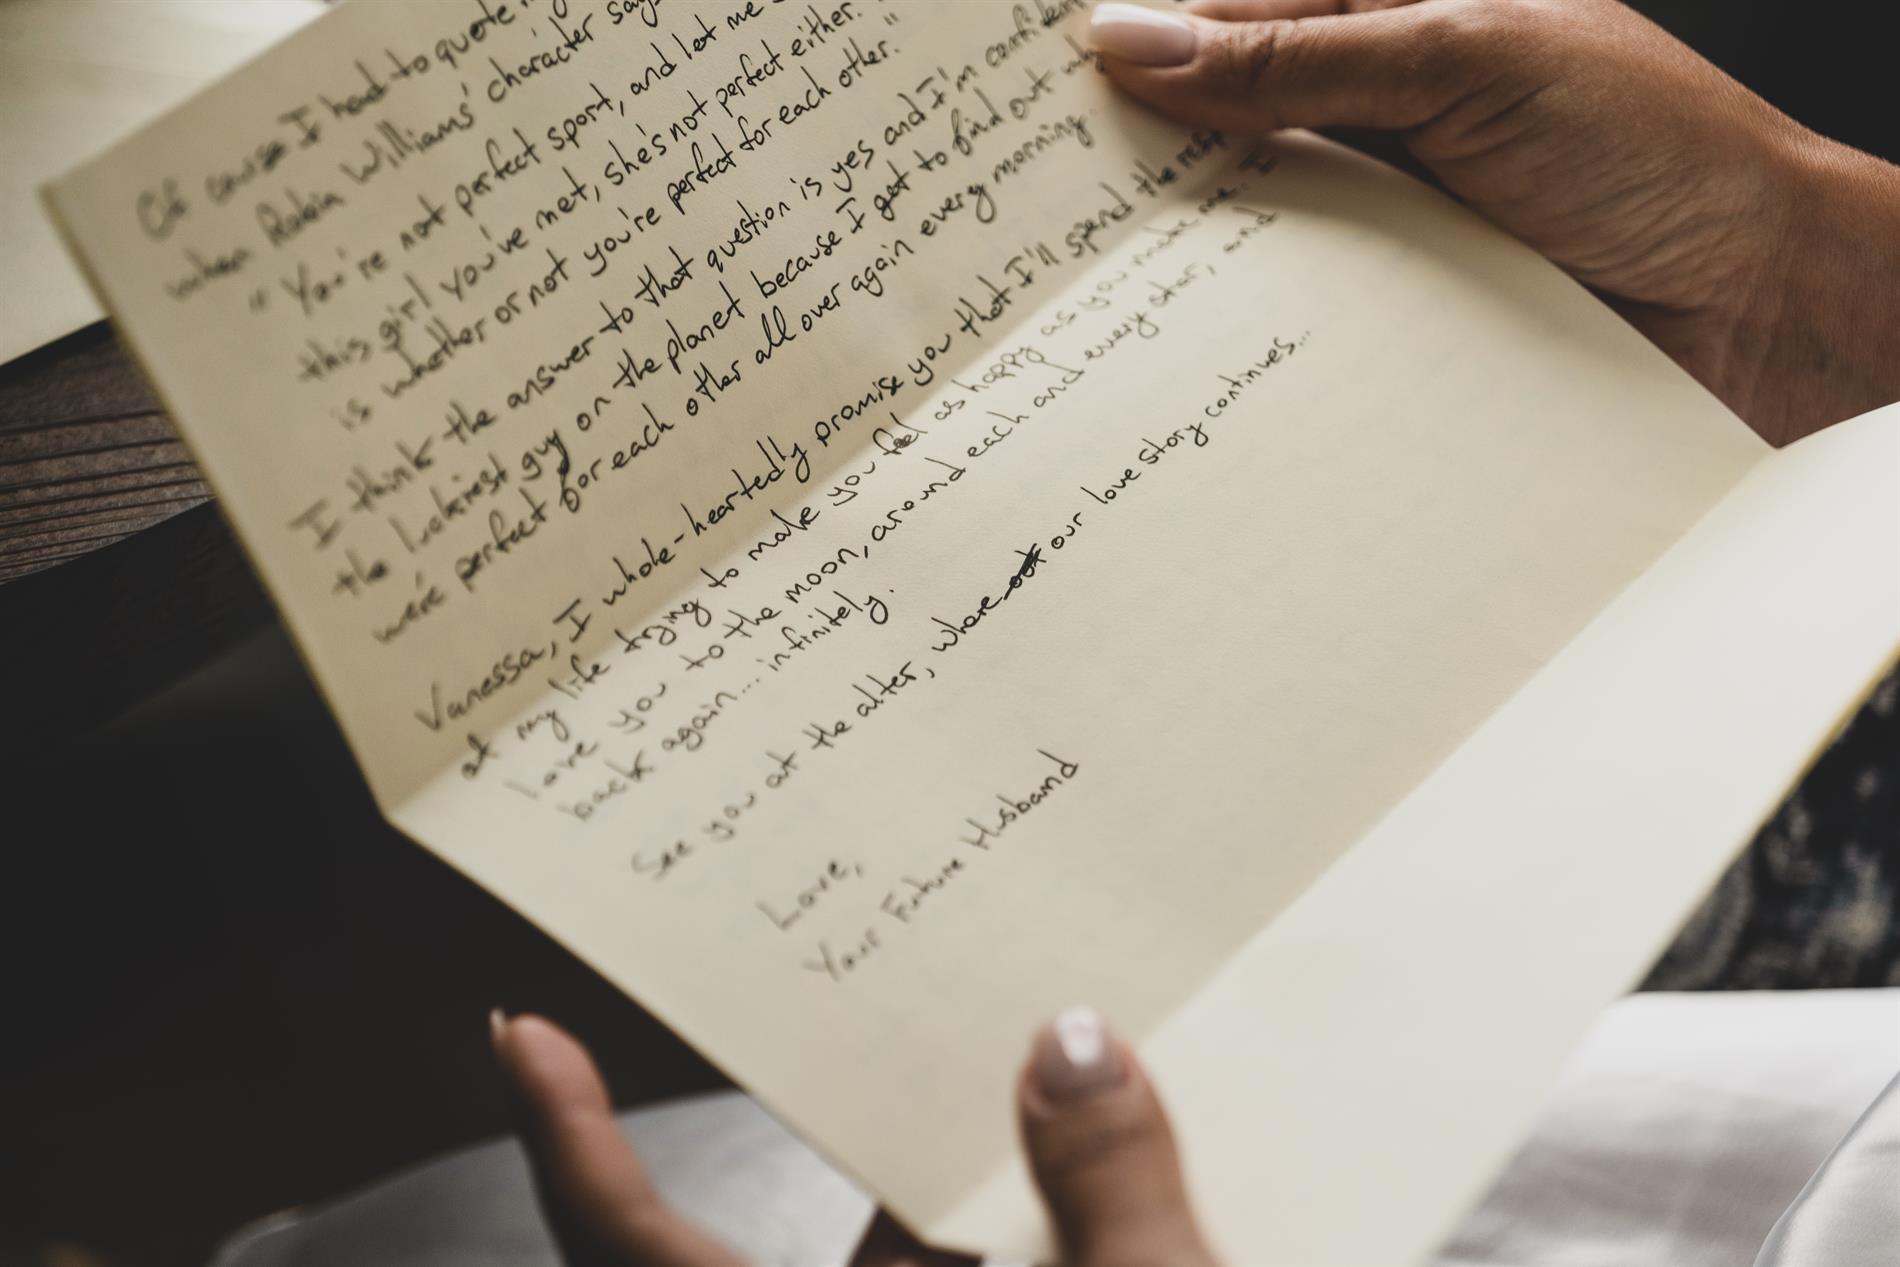 Of course I had to quote my
when Robin Williams' character says
"You're not perfect sport, and let me
this girl you've met, she's not perfect either.
is whether or not you're perfect for each other."
I think the answer to that question is yes and I'm confident
the luckiest guy on the planet because I get to find out why
we're perfect for each other all over again every morning.
Vanessa, I whole-heartedly promise you that I'll spend the rest
of my life trying to make you feel as happy as you make me. I
love you to the moon, around each and every star, and
back again... infinitely.
See you at the alter, where our love story continues...
Love,
Your Future Husband